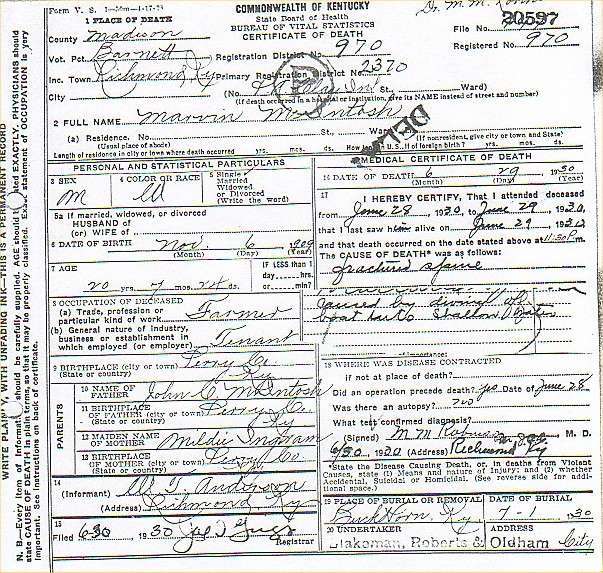 Form V. S. 1
COMMONWEALTH OF KENTUCKY
State Board of Health
BUREAU OF VITAL STATISTICS
CERTIFICATE OF DEATH
1 PLACE OF DEATH
File No. 20597
Registered No. 970
County Madison
Vot. Pct. Barnett
Registration District No. 970
Inc. Town Richmond Ky Primary Registration District No. 2370
City (No. St., Ward)
(If death occurred in a hospital or institution, give its NAME instead of street and number)
2 FULL NAME Marvin McIntosh
(a) Residence. No. St., Ward.
(Usual place of abode) (If nonresident, give city or town and State)
Length of residence in city or town where death occurred yrs. mos. ds. How long in U. S., if of foreign birth? yrs. mos. ds.
PERSONAL AND STATISTICAL PARTICULARS
3 SEX M
4 COLOR OR RACE W
5 Single Married Widowed or Divorced (Write the word)
5a If married, widowed, or divorced
HUSBAND of
(or) WIFE of
6 DATE OF BIRTH Nov 6 1909
(Month) (Day) (Year)
7 AGE 20 yrs. 7 mos. ds.
IF LESS than 1 day, hrs. or min?
8 OCCUPATION OF DECEASED
(a) Trade, profession or particular kind of work Farmer
(b) General nature of industry, business or establishment in which employed (or employer) Tenant
9 BIRTHPLACE (city or town) Perry Co.
(State or country) Ky
PARENTS
10 NAME OF FATHER John C. McIntosh
11 BIRTHPLACE OF FATHER (city or town) Perry Co.
(State or country)
12 MAIDEN NAME OF MOTHER Mildie Ingram
13 BIRTHPLACE OF MOTHER (city or town) Perry Co
(State or country)
14 (Informant) W. T. Anderson
(Address) Richmond Ky
15 Filed 6-30 1930
Registrar
MEDICAL CERTIFICATE OF DEATH
16 DATE OF DEATH 6 29 1930
(Month) (Day) (Year)
17 I HEREBY CERTIFY, That I attended deceased
from June 28 1930, to June 29 1930,
that I last saw him alive on June 29 1930,
and that death occurred on the date stated above at 1:30 P.m.
The CAUSE OF DEATH* was as follows:
fractured spine
caused by diving off
boat into Shallow Water
18 WHERE WAS DISEASE CONTRACTED
if not at place of death?
Did an operation precede death? yes Date of June 28
Was there an autopsy? no
What test confirmed diagnosis?
(Signed) M. M. M. D.
6/30, 1930 (Address) Richmond Ky
*State the Disease Causing Death, or, in deaths from Violent Causes, state (1) Means and nature of Injury; and (2) whether Accidental, Suicidal or Homicidal. (See reverse side for additional
19 PLACE OF BURIAL OR REMOVAL Buckhorn, Ky
DATE OF BURIAL 7-1 1930
20 UNDERTAKER Blakeman, Roberts & Oldham
ADDRESS City
WRITE PLAINLY, WITH UNFADING INK—THIS IS A PERMANENT RECORD
N. B.—Every item of information should be carefully supplied. AGE should be stated EXACTLY. PHYSICIANS should
state CAUSE OF DEATH in plain terms, so that it may be properly classified. Exact statement of OCCUPATION is very
important. See instructions on back of certificate.